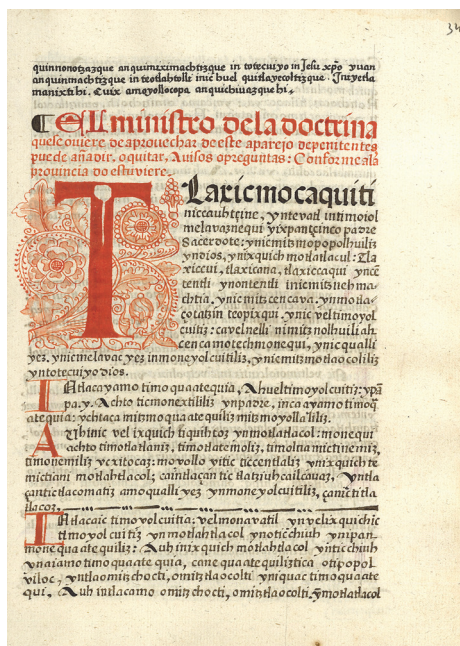 34
quinnonotzazque anquinximachtizque in totecuiyo in Jesu xpo yuan
anquinmachtizque in teotlahtolli inic huel quitlayecoltizque. Inyetla
manixti hi. Cuix amoyollocopa anquichiuazque hi.
¶ El ministro dela doctrina
quele ouiere de aprouechar de este aparejo de penitentes
puede añadir, o quitar, Auisos o preguntas: Conforme ala
prouincia do estuuiere.
Tlaxicmocaquiti
niccauhtzine, yntevatl intimoiol
melavaznequi yixpantzinco padre
Sacerdote: ynic mitzmopopolhuiliz
yn dios, ynixquich motlatlacul: Tla
xiccui, tlaxicana, tlaxiccaqui yncen
tentli ynontentli inic mitznehma
chtia, ynic mitzcencava. yn motla
çotatzin teopixqui. ynic vel timoyol
cuitiz: ca vel nelli nimitznolhuiliah
cenca motech monequi, ynic qualli
yez. ynic melavac yez in moneyolcuitiliz, ynic mitzmotlaocoliliz
yn totecuiyo dios.
Intlacayamo timoquaatequia, Ahuel timoyolcuitiz: ypan
pa.y. Achto ticmonextiliz ynpadre, in ca ayamo timoq
atequia: ychtaca mitzmoquaatequiliz mitzmoyollaliliz.
Auh inic vel ixquich tiquihtoz yn motlatlacol: monequi
achto timotlatlaniz, timotlatemoliz, timolnamictinemiz,
timonemiliz ycxitocaz: moyollo yitic ticcentlaliz ynixquich te
mictiani motlahtlacol; caintlacan tictlatziuhcailcavaz, Yntla
çantictlacomatiz amo qualli yez yn moneyolcuitiliz, çan tictitla
tlacoz.
Intlacaic timoyolcuitia: velmonavatil ynye ixquichic
timoyolcuitiz yn motlahtlacol ynoticchiuh, ynipan-
monequaatequiliz: Auh in ixquich motlahtlacol ynticchiuh
ynaiamo timoquaatequia, can e quaatequiliztica otipopol
viloc, yntla omitzchocti, omitztlaocolti yniquac timoquaate
qui, Auh intlacamo omitzchocti, omitztlaocolti. ymotlatlacol